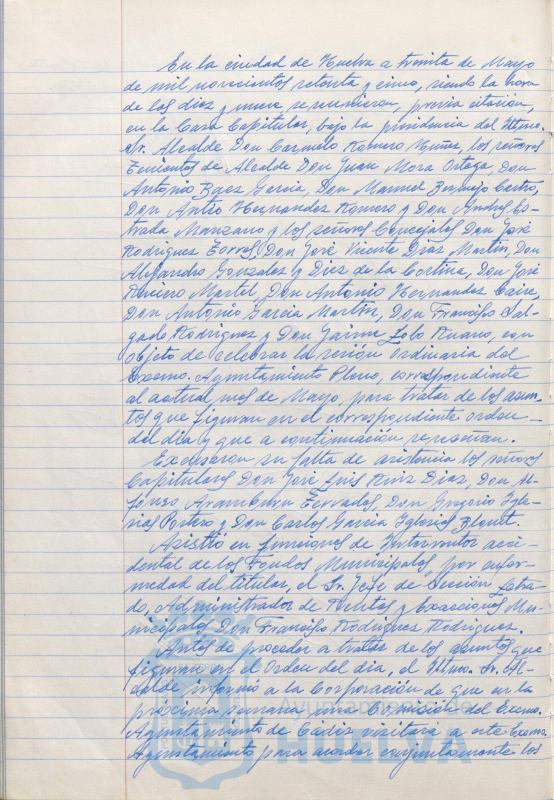 En la ciudad de Huelva a treinta de Mayo
de mil novecientos setenta y cinco, siendo la hora
de las diez y nueve se reunieron, previa citación,
en la Casa Capitular, bajo la presidencia del Iltmo.
Sr. Alcalde Don Carmelo Romero Núñez, los señores
Tenientes de Alcalde Don Juan Mora Ortega, Don
Antonio Baez García, Don Manuel Bermejo Castro,
Don Antº Hernandez Romero y Don Andres Es-
trada Manzano y los señores Concejales Don José
Rodriguez Torres, Don José Vicente Dias Martin, Don
Alejandro Gonzalez y Diez de la Cortina, Don José
Martel, Don Antonio Hernandez
Don Antonio García Martín, Don Francisco Sal-
gado Rodriguez y Don Jaime Lobo Ruano, con
objeto de celebrar la sesión ordinaria del
Excmo. Ayuntamiento Pleno, correspondiente
al actual mes de Mayo, para tratar de los asun-
tos que figuran en el correspondiente orden
del día y que a continuación se reseñan.
Excusaron su falta de asistencia los señores
Capitulares Don José Luis Ruiz Diaz, Don Al-
fonso Aramburu Terrades, Don Gregorio Igle-
sias Portero y Don Carlos García Iglesias
Asistió en funciones de Interventor acci-
dental de los Fondos Municipales por enfer-
medad del titular, el Sr. Jefe de Sección Letra-
do, Administrador de Rentas y Exacciones Mu-
nicipales Don Francisco Rodriguez Rodriguez.
Antes de proceder a tratar de los asuntos que
figuran en el Orden del día, el Iltmo. Sr. Al-
calde informó a la Corporación de que en la
próxima semana una Comisión del Excmo.
Ayuntamiento de Cádiz visitará a este Excmo.
Ayuntamiento para acordar conjuntamente los
Ayuntamiento de
HUELVA